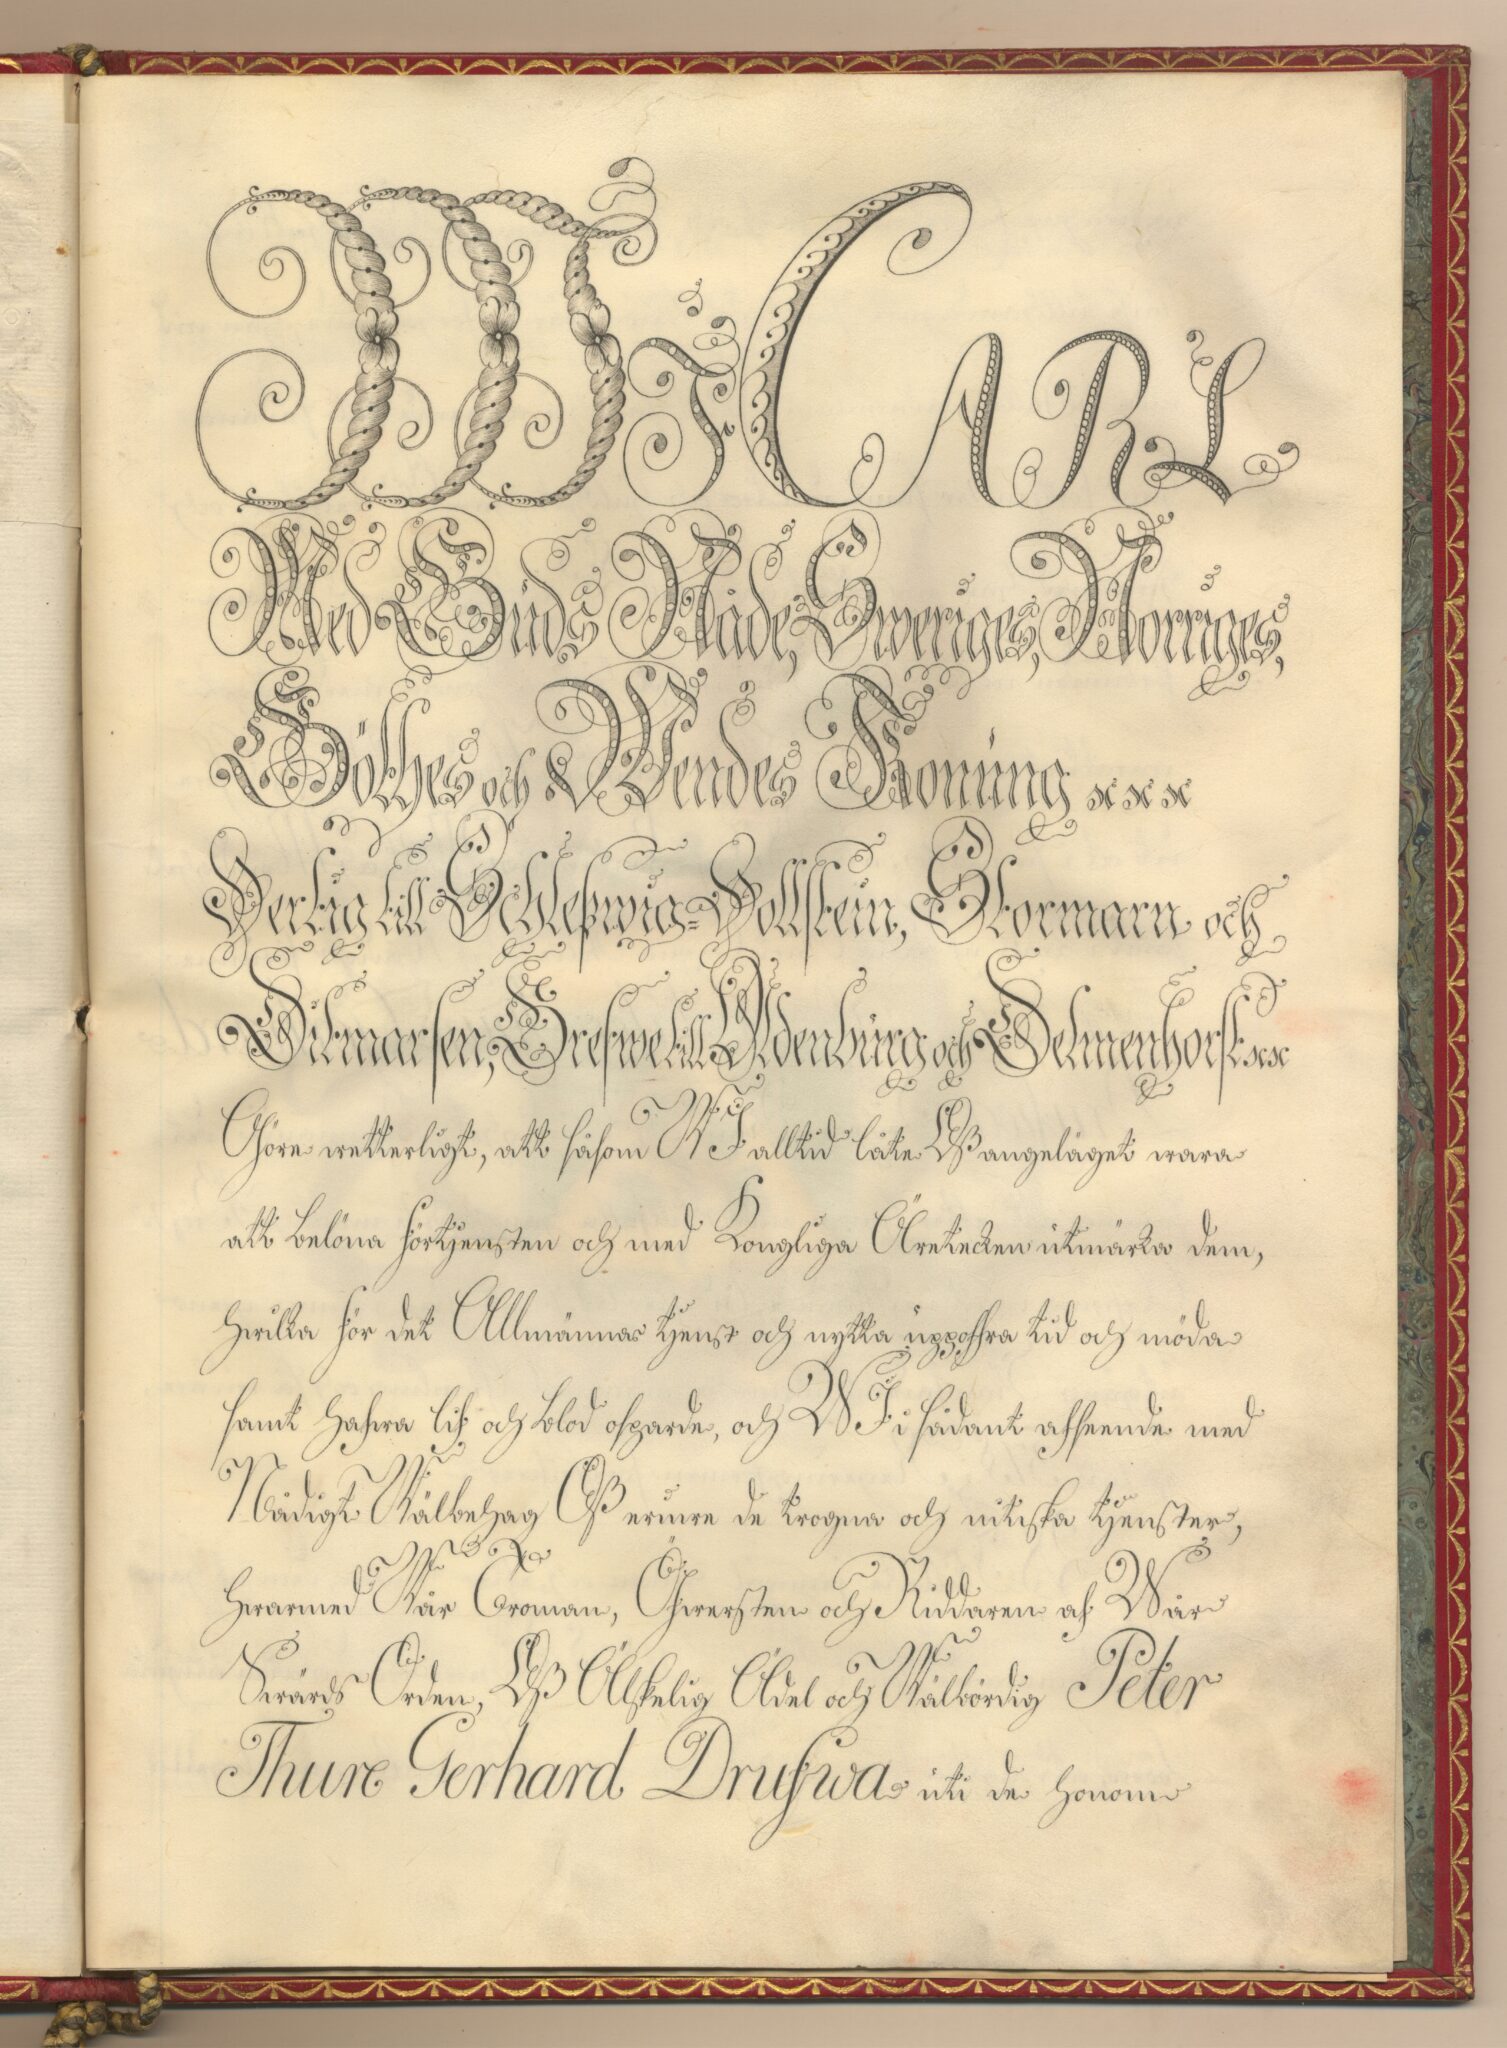 WI CARL
Med Guds Nåde, Sweriges, Norriges,
Göthes och Wendes Konung &c &c &c
Hertig till Schleßwig-Hollstein, Stormarn och
Ditmarsen, Grefwe till Oldenburg och Delmenhorst &c &c
Göre wetterligt, att såsom WI alltid låte Oß angeläget wara
att belöna förtjensten och med Kongliga Äretecken utmärka dem,
hwilka för det Allmännas tjenst och nytta uppoffra tid och möda
samt hafwa lif och blod ospards, och WI i sådant afseende med
Nådigt Wälbehag Oß erinre de trogna och nitiska tjenster,
hwarmed Wår Troman, Öfwersten och Riddaren af Wår
Swärds Orden, Oß Älskelig Ädel och Wälbördig Peter
Thure Gerhard Drufwa uti de honom